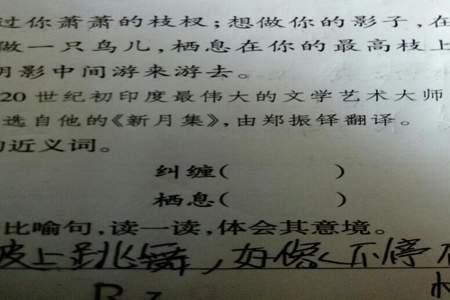 过你萧萧的枝杈；想做你的影子，在
做一只鸟儿，栖息在你的最高枝上
阴影中间游来游去。
20世纪初印度最伟大的文学艺术大师
选自他的《新月集》，由郑振铎翻译。
近义词。
纠缠（ ）
栖息（ ）
比喻句，读一读，体会其意境。
波上跳舞，好像 不停